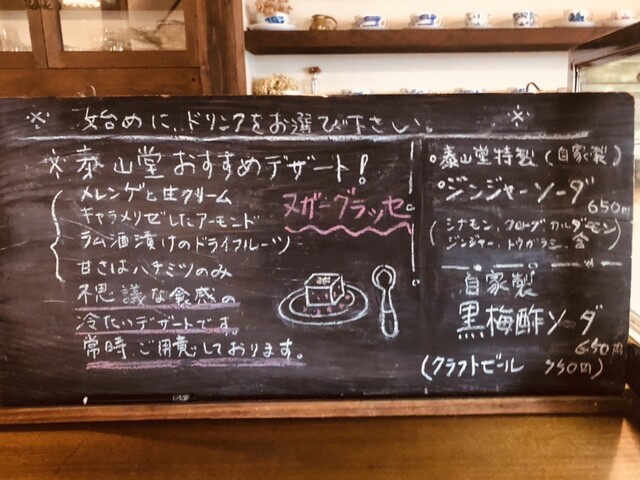 ※ 始めに、ドリンクをお選び下さい。 ※
※ 泰山堂おすすめデザート!
メレンゲと生クリーム
キャラメリゼしたアーモンド
ラム酒漬けのドライフルーツ
甘さはハチミツのみ
不思議な食感の
冷たいデザートです。
常時ご用意しております。
ヌガーグラッセ
泰山堂特製(自家製)
ジンジャーソーダ
650円
(シナモン、クローブ、カルダモン
ジンジャー、トウガラシ、含)
自家製
黒梅酢ソーダ
650円
(クラフトビール 750円)